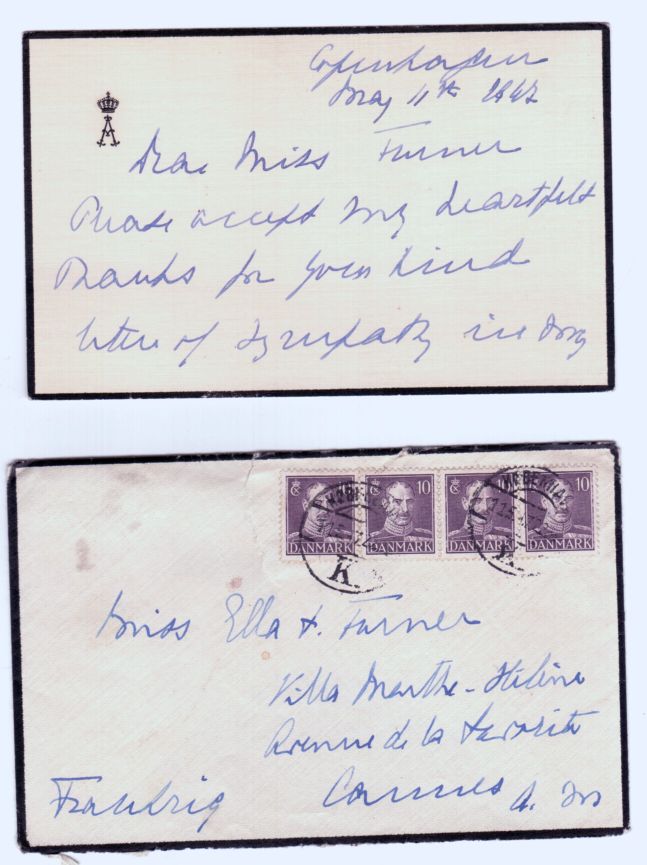 Copenhagen
May 11th 1947
A
Dear Miss Turner
Please accept my heartfelt
thanks for your kind
letter of sympathy in my
10 10 10
DANMARK DANMARK DANMARK DANMARK
K.
Miss Ella F. Turner
Villa Marthe-Hélène
Avenue de la Favorite
Cannes A. M
Frankrig